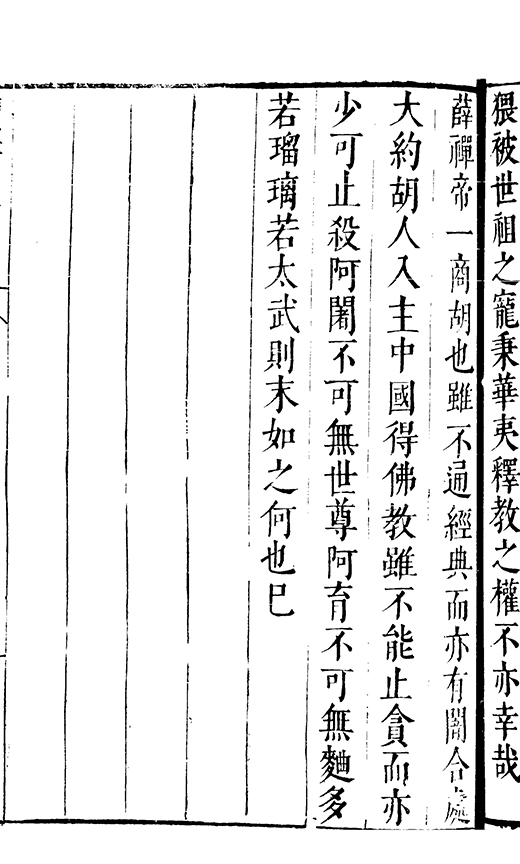 猥被世祖之寵秉華夷釋教之權不亦幸哉
薛禪帝一商胡也雖不通經典而亦有闇合處
大約胡人入主中國得佛教雖不能止貪而亦
少可止殺阿闍不可無世尊阿育不可無麯多
若瑠璃若太武則末如之何也已